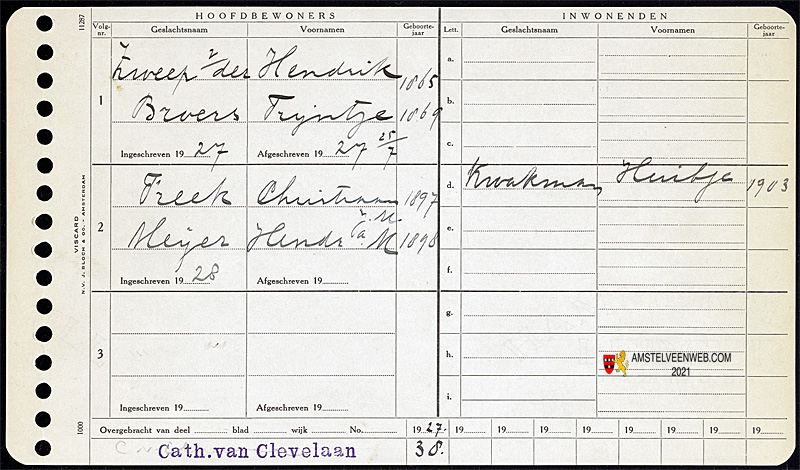 HOOFDBEWONERS INWONENDEN
Volgnr. Geslachtsnaam Voornamen Geboortejaar Lett. Geslachtsnaam Voornamen Geboortejaar
11287
Zweep v der Hendrik 1865 a.
1 Broers Trijntje 1869 b.
c.
Ingeschreven 19 27 Afgeschreven 19 27 25/7
Treek Christiaan 1897 d. Kwakman Huibje 1903
J. M.
2 Meyer Hendr a. M 1898 e.
Ingeschreven 19 28 Afgeschreven 19 f.
g.
3 h.
AMSTELVEENWEB.COM
2021
i.
Ingeschreven 19 Afgeschreven 19
Overgebracht van deel blad wijk No. 19 27. 19 19 19 19 19 19 19 19
Cath.van Clevelaan 38.
VISCARD
N.V. J. BLOCH & CO. - AMSTERDAM
1000